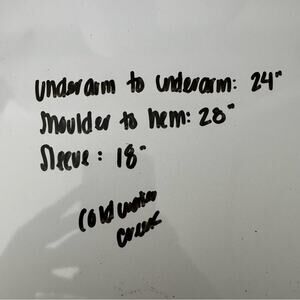 underarm to underarm: 24"
shoulder to hem: 28"
sleeve: 18"
cold water
creek